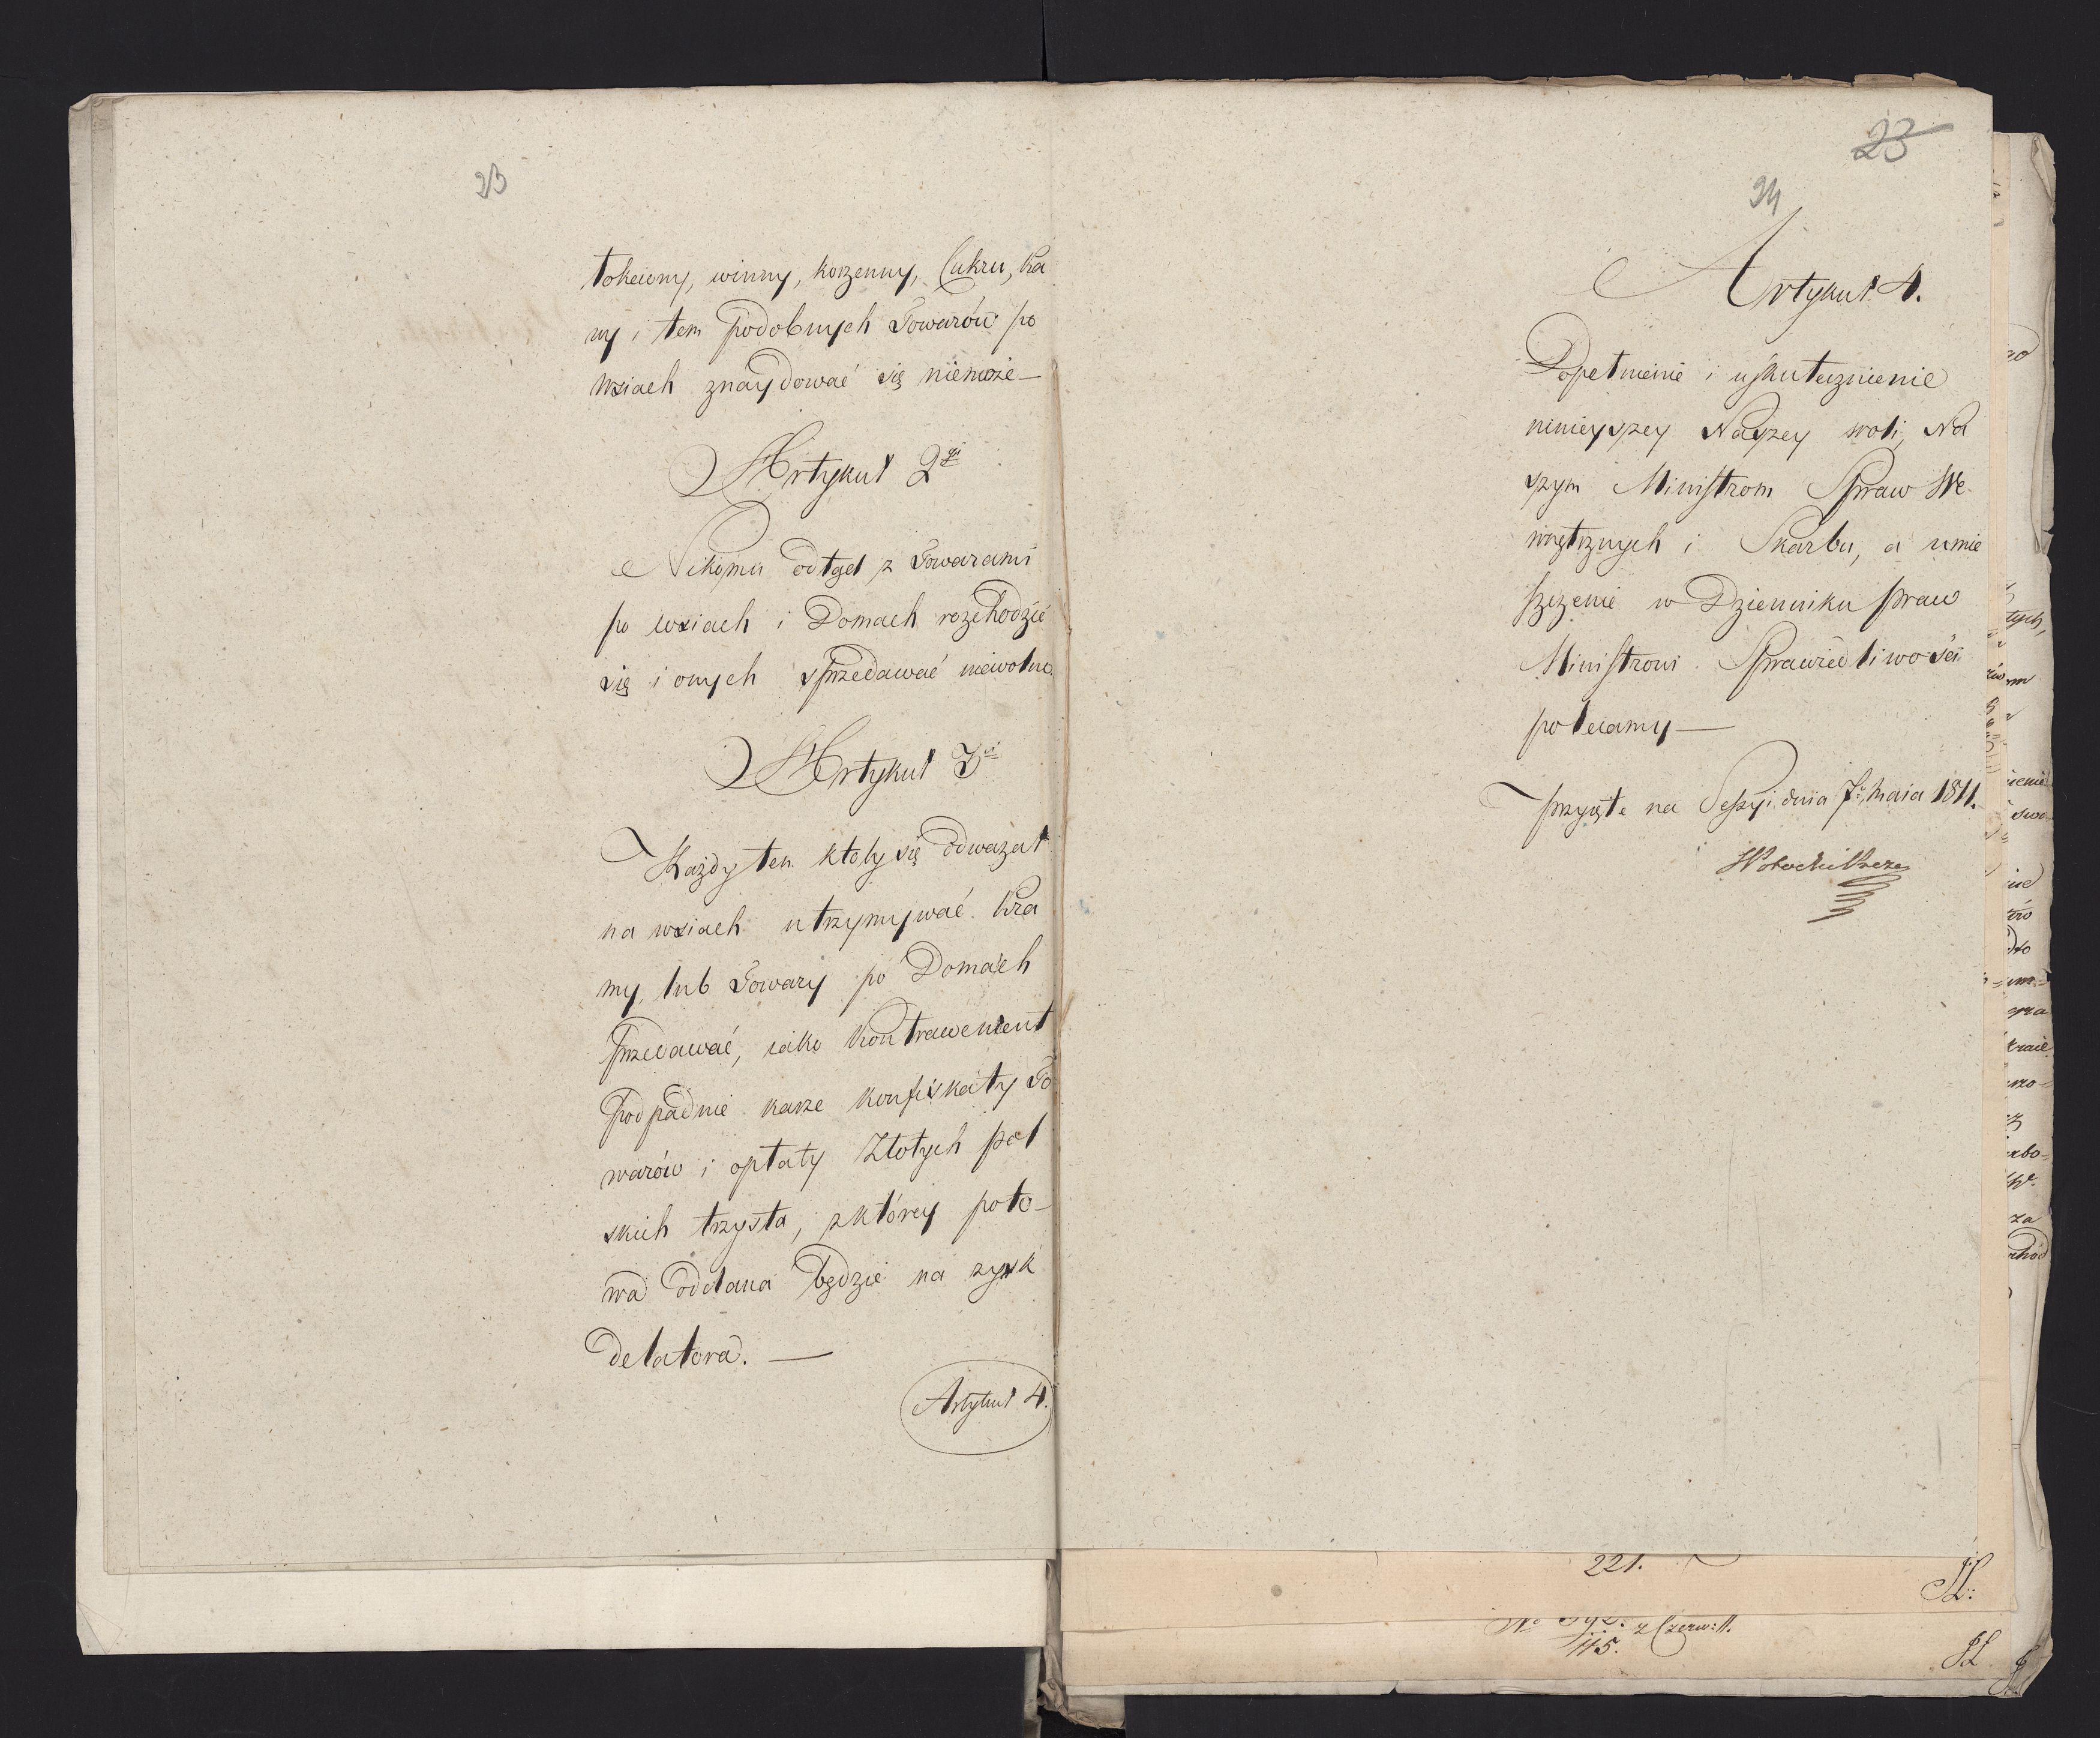 23
łokciowy, winny, korzenny, Cukru, ka
wy i tem podobnych Towarów po
wsiach znaydować się niemoże—
Artykuł 2gi
Nikomu odtąd z Towarami
po wsiach i Domach rozchodzić
się i onych sprzedawać niewolno.
Artykuł 3ci
Każdy ten któryby się odważał
na wsiach utrzymywać kra
my lub Towary po Domach
przedawać, iako kontrawenient
podpadnie karze konfiskaty To
warów i opłaty Złotych pol
skich trzysta, z którey poło-
wa oddana będzie na zysk
delatora. —
Artykuł 4.
23
24
Artykuł 4.
Dopełnienie i uskutecznienie
ninieyszey Naszey woli, Na
szym Ministrom Spraw We
wnętrznych i Skarbu, a umie
szczenie w Dzienniku praw
Ministrowi Sprawiedliwości
polecamy —
przyięte na Sessyi dnia 7o. Maia 1811.
221.
z Czerw: 11.
115.